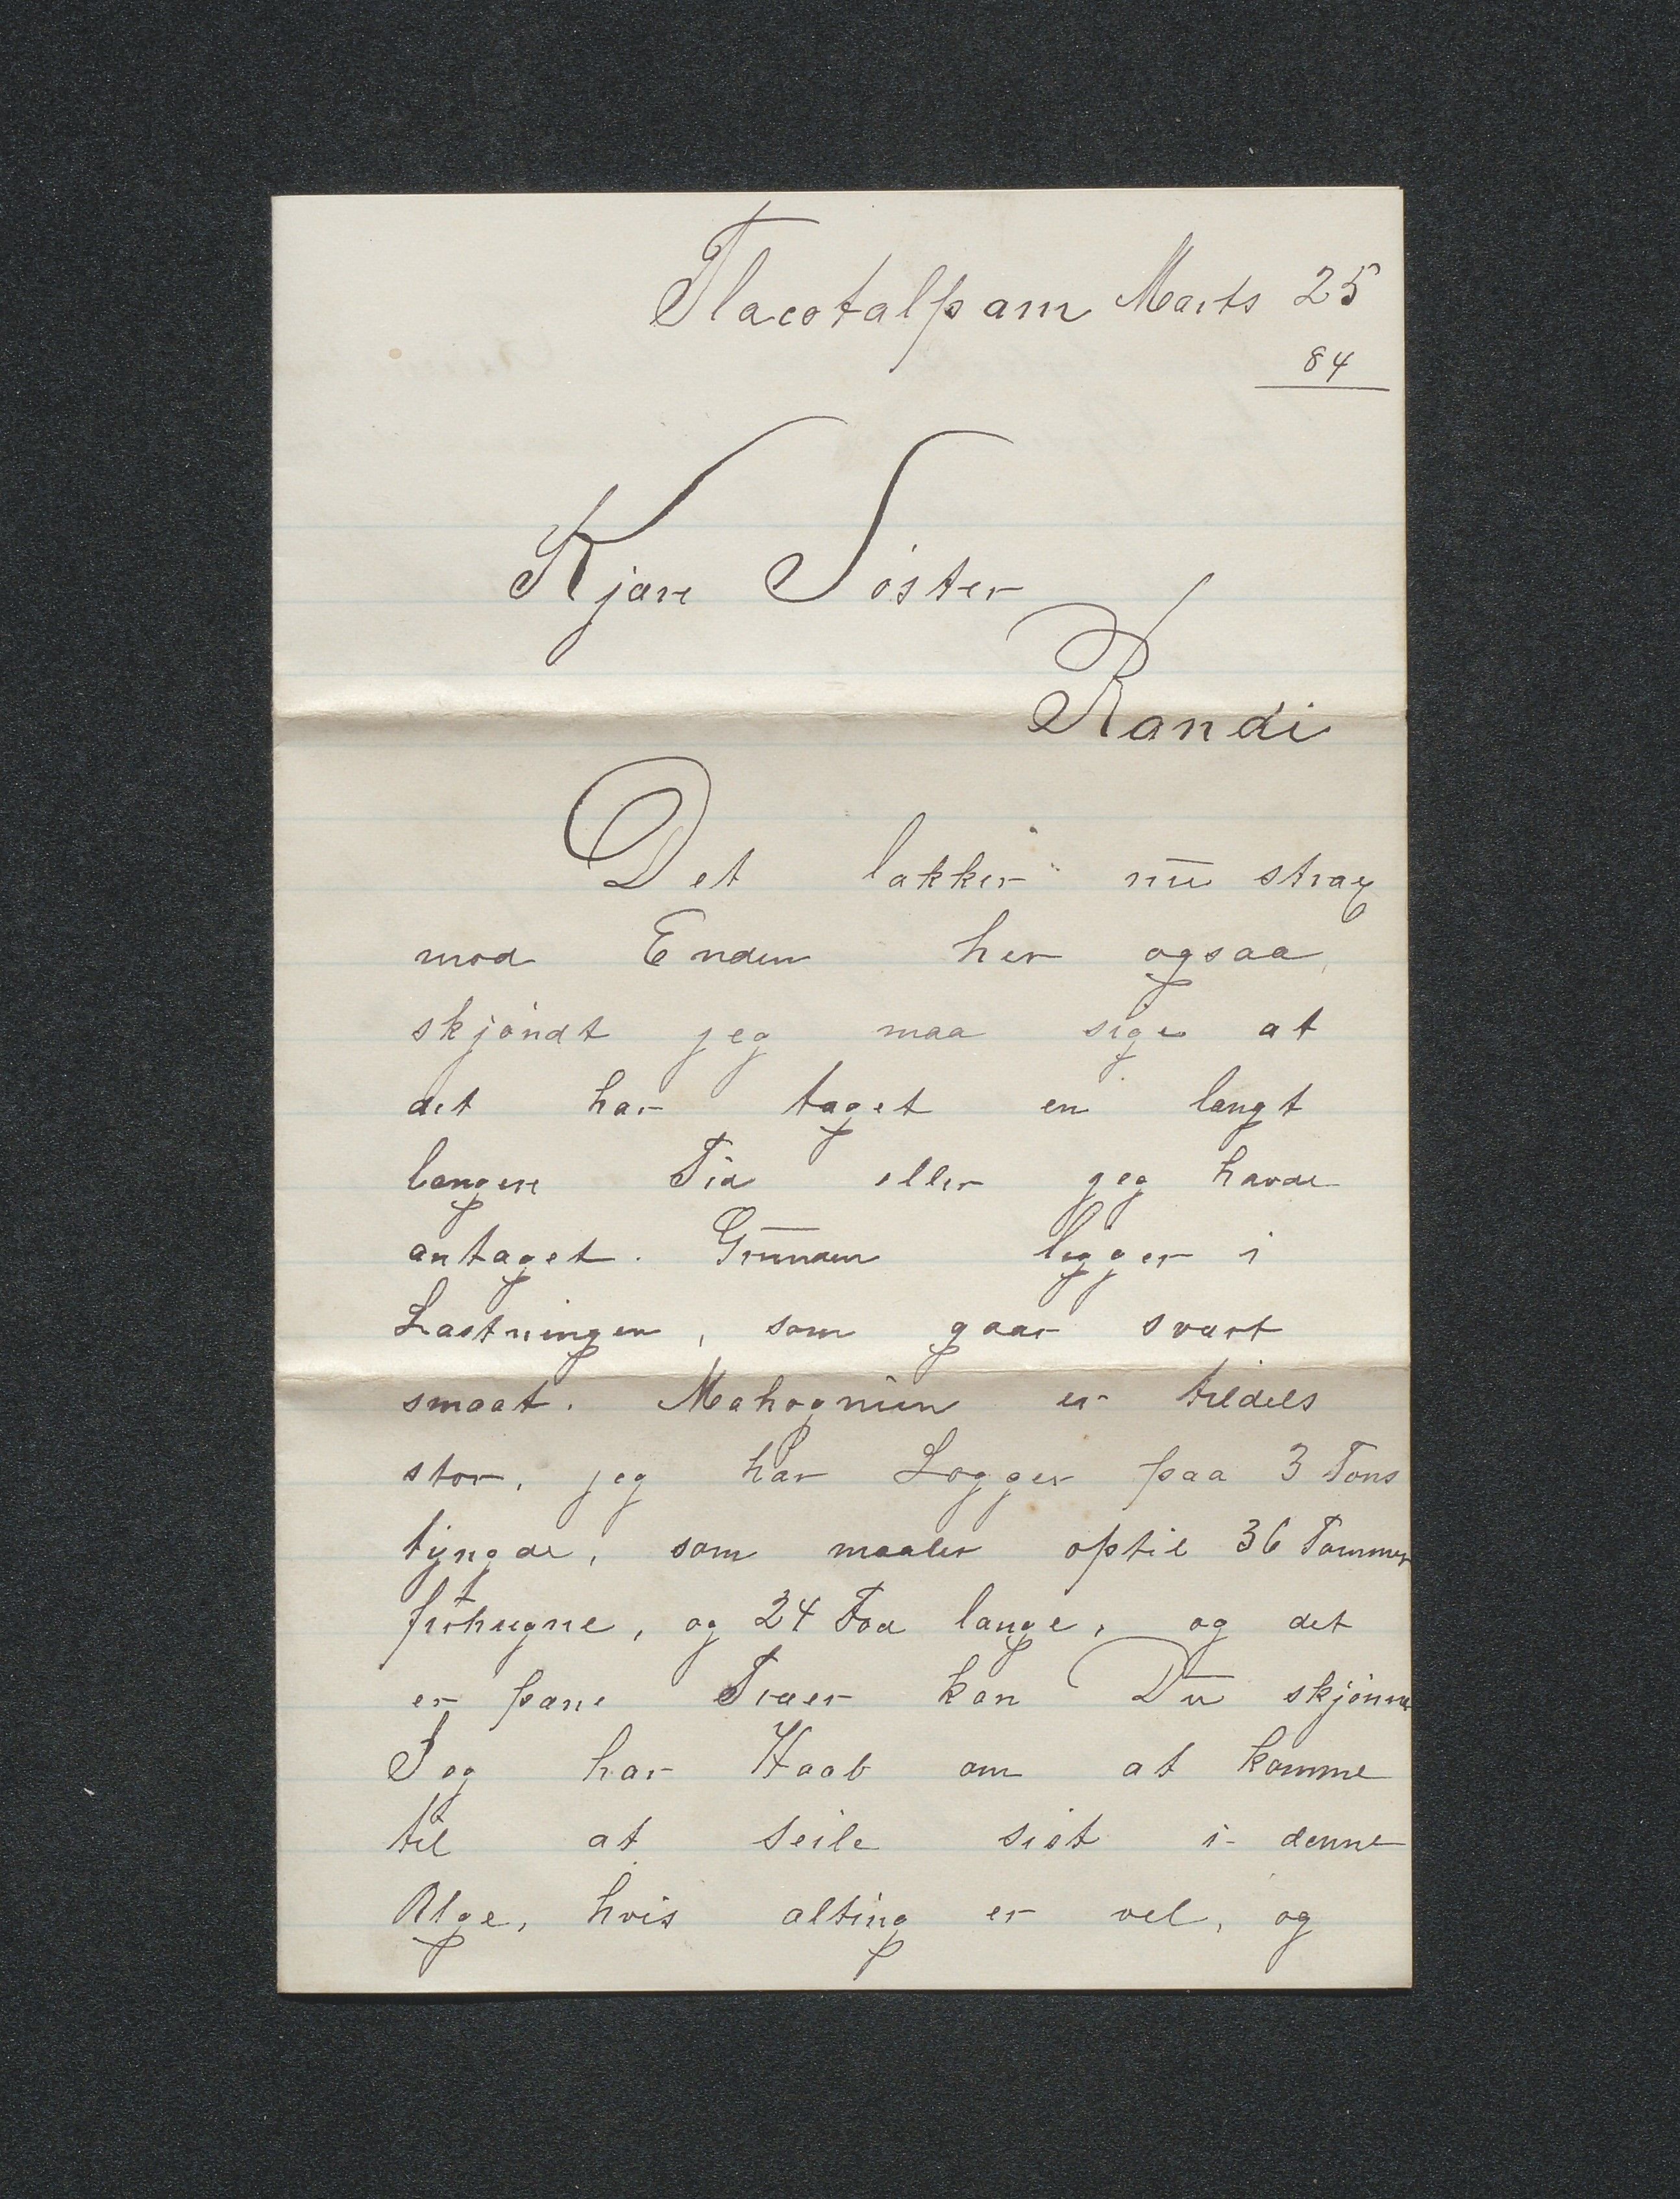 Tlacotalpam Marts 25
84
Kjære Söster
Randi
Det lakker nu strax
mod Enden her ogsaa,
skjöndt jeg maa sige at
det har taget en langt
længere Tid eller jeg havde
antaget. Grunden ligger i
Lastningen, som gaar svært
smaat. Mahognien er tildels
stor, jeg har Logger paa 3 Tons
tyngde, som maaler optil 36 Tommer
firhugne, og 24 Fod lange, og det
er pene Træer kan Du skjönne
Jeg har Haab om at komme
til at seile sist i denne
Uge, hvis alting er vel, og